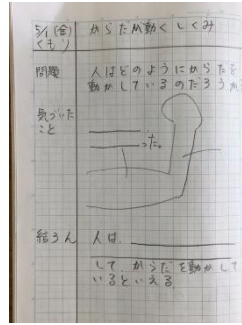 5/1(金) からだが動くしくみ
くもり
問題 人はどのようにからだを
動かしているのだろうか
気づいた
こと
った。
結ろん 人は、
して、からだを動かして
いるといえる